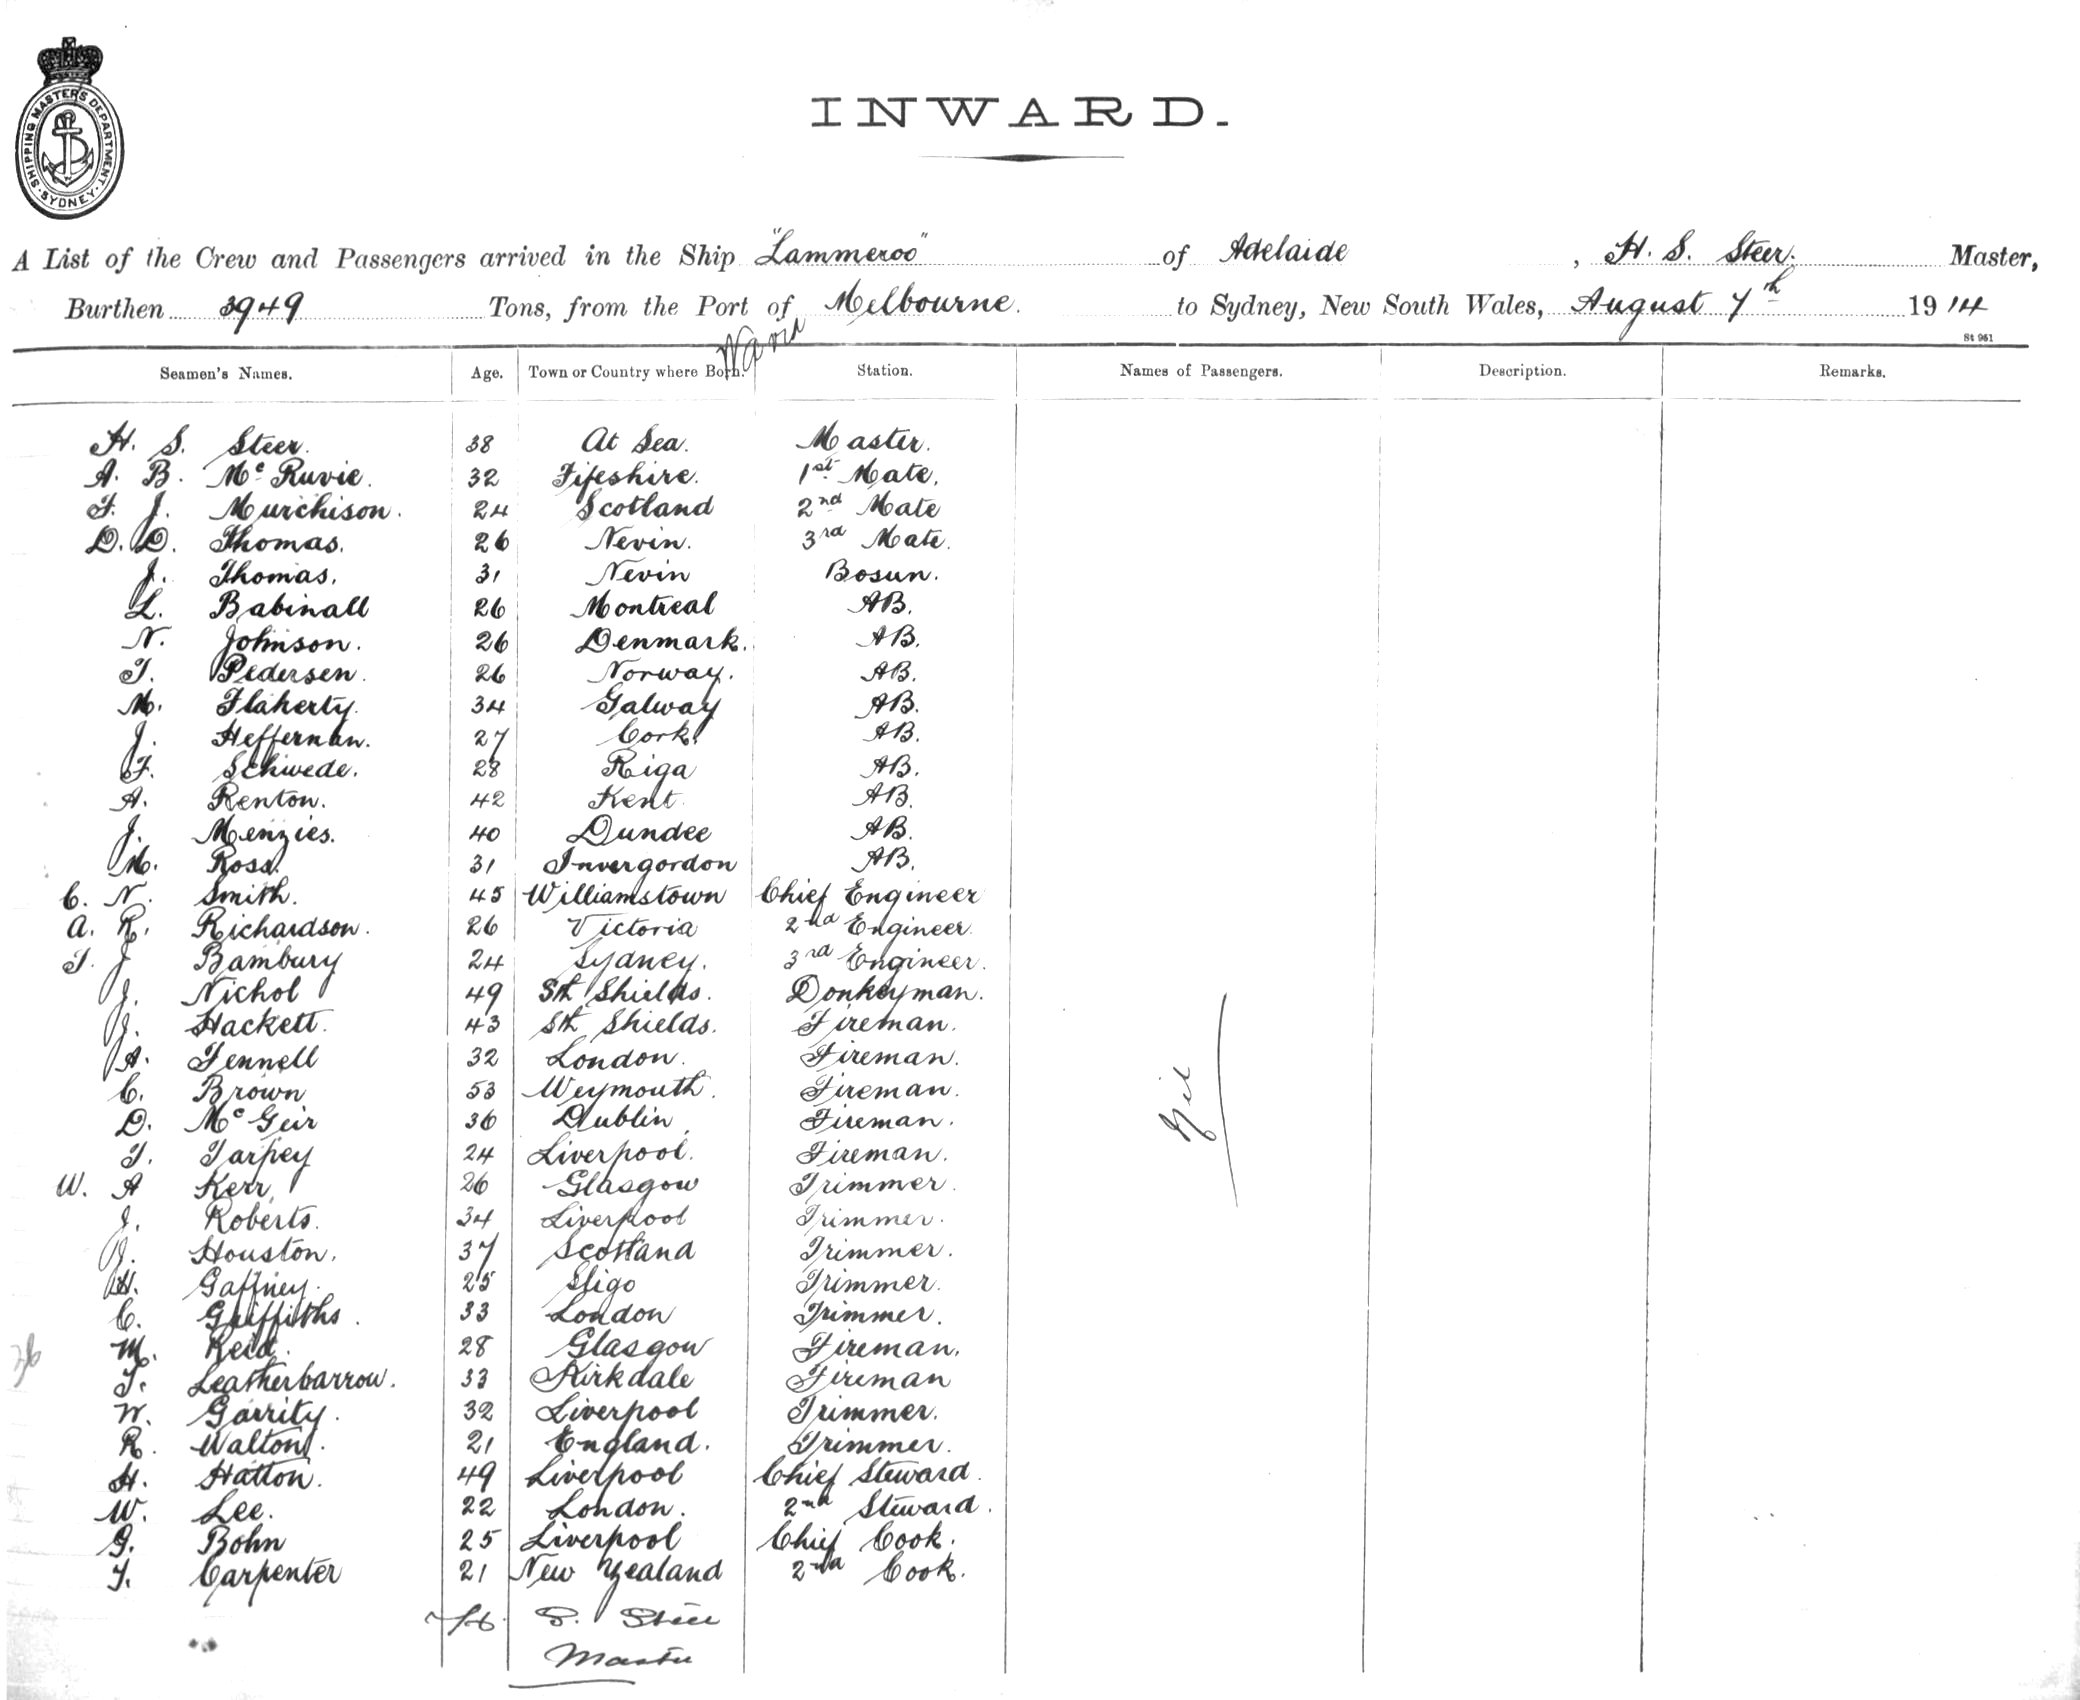 SHIPPING MASTER'S DEPARTMENT. SYDNEY.
INWARD.
A List of the Crew and Passengers arrived in the Ship "Lammeroo" of Adelaide, H. S. Steer. Master,
Burthen 3949 Tons, from the Port of Melbourne. to Sydney, New South Wales, August 7th 1914
St 961
Seamen's Names. Age. Town or Country where Born. Station. Names of Passengers. Description. Remarks.
H. S. Steer. 38 At Sea. Master.
A. B. McRuvie. 32 Fifeshire. 1st Mate.
F. J. Murchison. 24 Scotland 2nd Mate
D. D. Thomas. 26 Nevin. 3rd Mate.
J. Thomas. 31 Nevin Bosun.
L. Babinall 26 Montreal AB.
N. Johnson. 26 Denmark. AB.
T. Pedersen. 26 Norway. AB.
M. Flaherty. 34 Galway AB.
J. Heffernan. 27 Cork. AB.
F. Schwede. 28 Riga AB.
A. Renton. 42 Kent. AB.
J. Menzies. 40 Dundee AB.
M. Ross. 31 Invergordon AB.
C. N. Smith. 45 Williamstown Chief Engineer
A. R. Richardson. 26 Victoria 2nd Engineer.
T. J. Bambury 24 Sydney. 3rd Engineer.
J. Nichol 49 Sth Shields. Donkeyman.
J. Hackett. 43 Sth Shields. Fireman.
A. Fennell 32 London. Fireman.
C. Brown 53 Weymouth. Fireman.
D. McGeir 36 Dublin. Fireman.
T. Tarpey 24 Liverpool. Fireman.
W. A Kerr 26 Glasgow Trimmer.
J. Roberts. 34 Liverpool Trimmer.
J. Houston. 37 Scotland Trimmer.
H. Gaffney. 25 Sligo Trimmer.
C. Griffiths. 33 London Trimmer.
M. Reid. 28 Glasgow Fireman.
T. Leatherbarrow. 33 Kirkdale Fireman
W. Garrity. 32 Liverpool Trimmer.
R. Walton. 21 England. Trimmer.
H. Hatton. 49 Liverpool Chief Steward.
W. Lee. 22 London. 2nd Steward.
G. Bohn 25 Liverpool Chief Cook.
T. Carpenter 21 New Zealand 2nd Cook.
Nil
H. S. Steer
Master